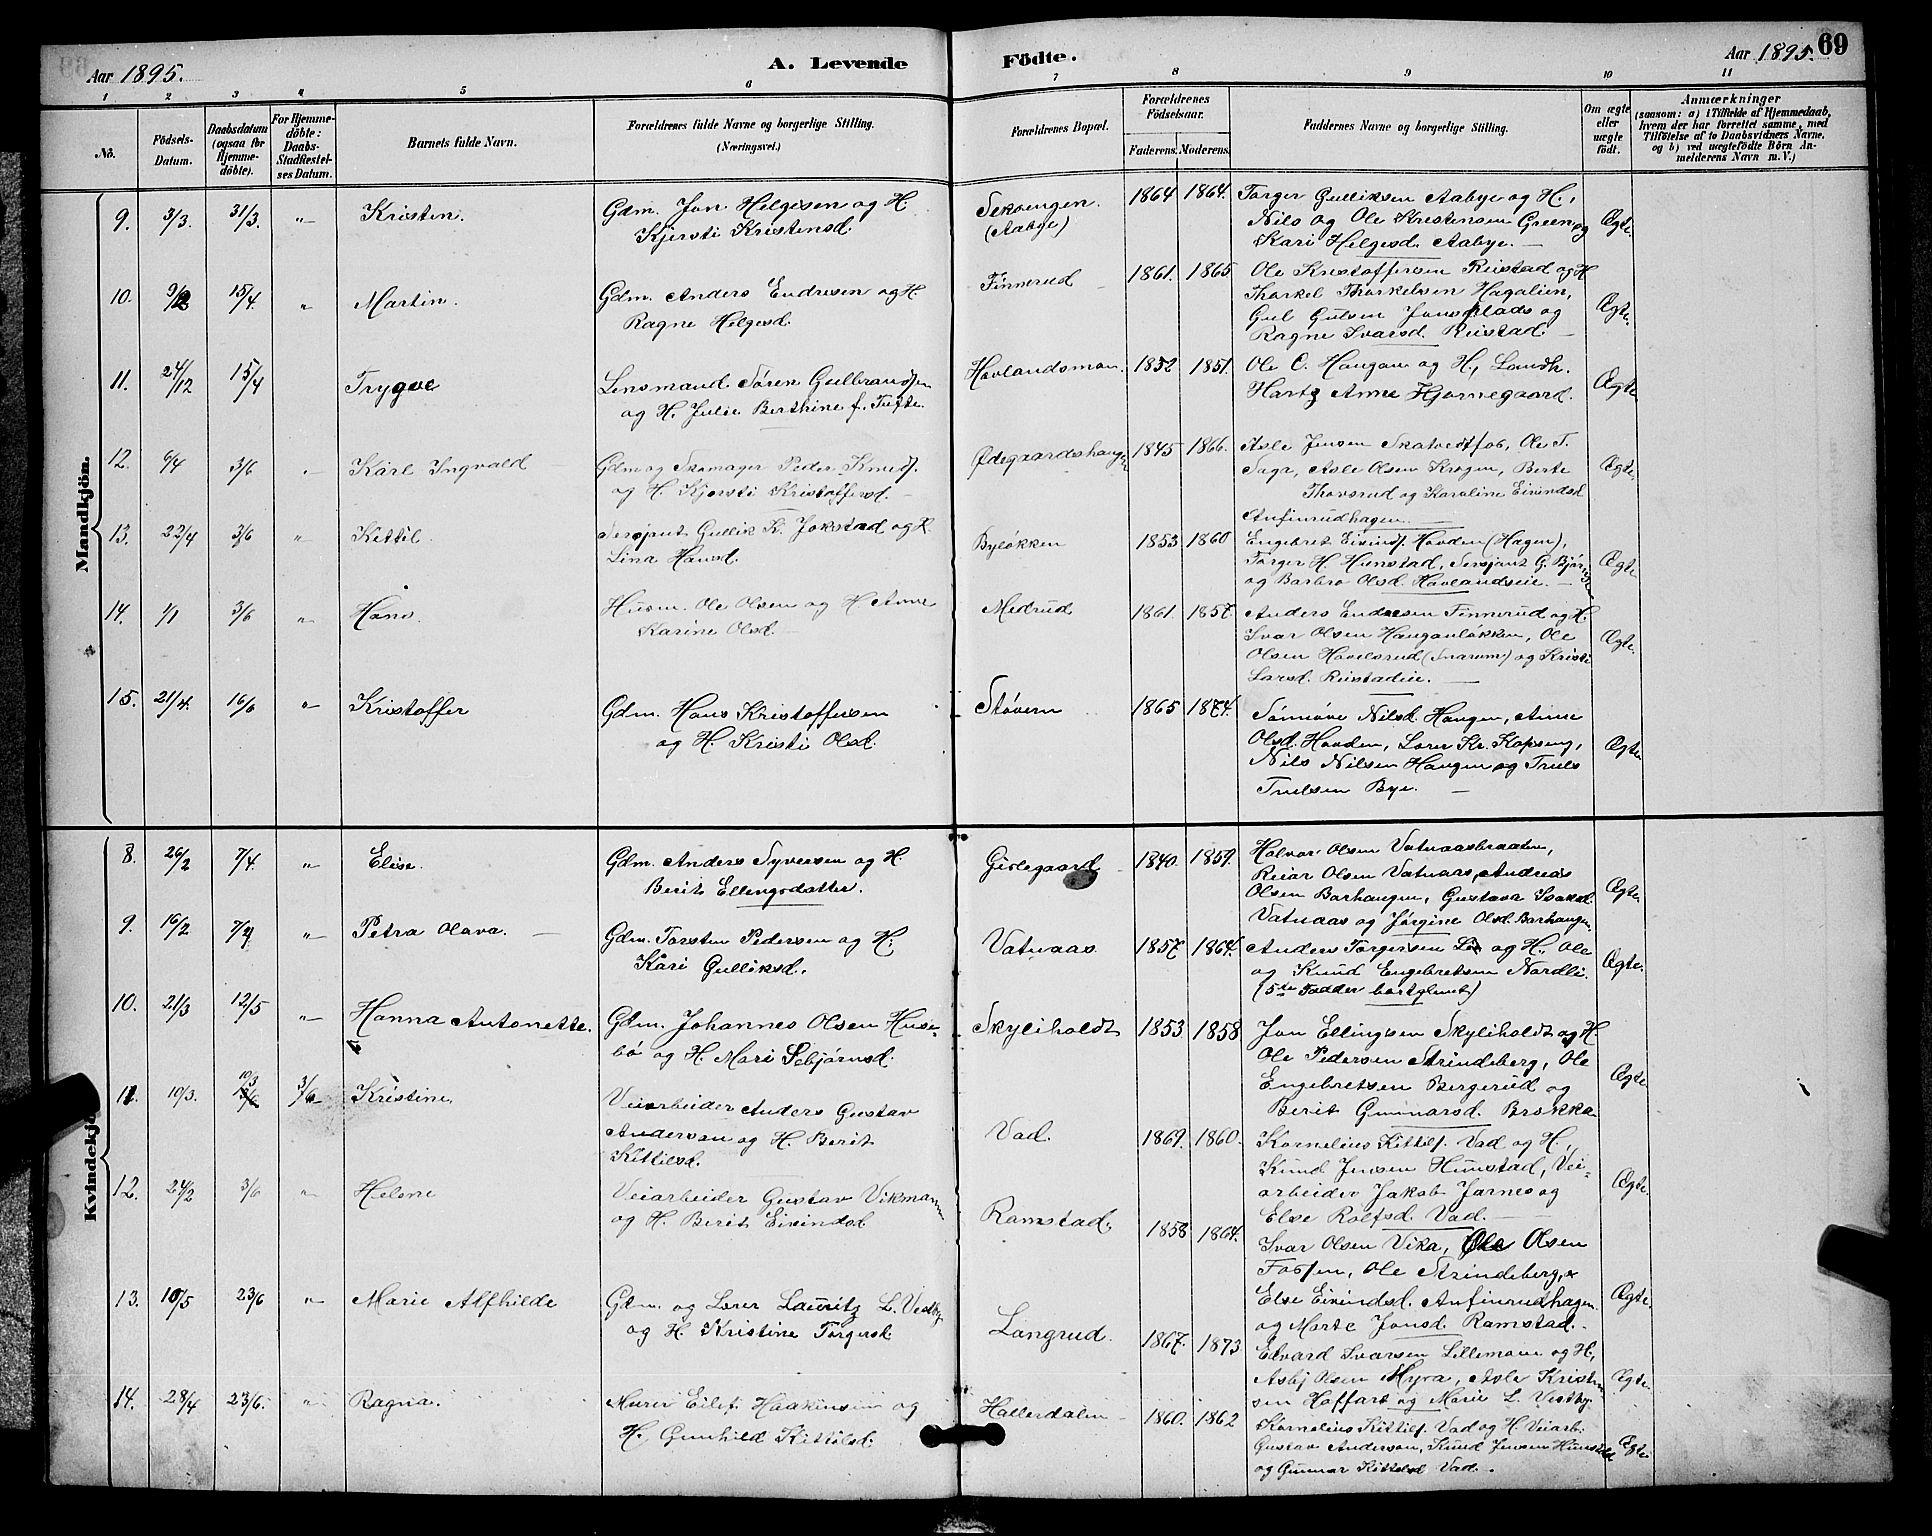 Aar 1895.
A. Levende Födte.
Aar 1895.
69
1 2 3 4 5 6 7 8 9 10 11
No.
Födsels-Datum.
Daabsdatum (ogsaa for Hjemme-döbte).
For Hjemme-döbte: Daabs-Stadfæstel-ses Datum.
Barnets fulde Navn.
Forældrenes fulde Navne og borgerlige Stilling. (Næringsvei.)
Forældrenes Bopæl.
Forældrenes Födselsaar.
Faderens. Moderens.
Faddernes Navne og borgerlige Stilling.
Om ægte eller uægte födt.
Anmærkninger
(saasom: a) i Tilfælde af Hjemmedaab, hvem der har forrettet samme, med Tilföielse af to Daabsvidners Navne, og b) ved uægtefödte Börn An-melderens Navn m. V.)
Mandkjön.
9. 3/3. 31/3. " Kristen. Gdm. Jon Helgesen og H. Kjersti Kristensd. (Aabye) 1864 1864. Torger Gulliksen Aabye og H., Nils og Ole Kristensen Green og Kari Helgesd. Aabye. Ægte.
10. 15/4. " Martin. Gdm. Anders Endresen og H. Ragne Helgesd. Finnerud 1861. 1865 Ole Kristoffersen Ruistad og H. Thorkel Thorkelsen Hagalien, Gul Gulsen Jonsplads og Ragne Ivarsd. Ruistad. Ægte.
11. 24/12 15/4 Trygve Lensmand Sören Gulbrandsen og H. Julie Berthine f. Tufte. Hovlandsmoen. 1852 1851. Ole C. Haugan og H., Landh. Hartz Anne Hjornegaard. Ægte
12. 6/4 3/6 " Karl Ingvald Gdm og Skomager Peder Knuds. og H. Kjersti Kristoffersd. Ødegaardshaugen 1845 1866. Asle Jensen Skatvedtfos, Ole T. Saga, Asle Olsen Krogen, Berte Thovsrud og Karoline Eivindsd Anfinrudhagen. Ægte
13. 22/4 3/6 " Kittil. Sersjant Gullik K. Jokstad og H. Lina Hansd. Byløkken 1853 1860 Engebret Eivinds. Hovden (Hagen), Torger H. Hunstad, Sersjant G. og Barbro Olsd. Hovlandseie. Ægte
14. 1/1 3/6 " Hans. Husm. Ole Olsen og H. Anne Karine Olsd. Medrud 1861. 1857. Anders Endresen Finnerud og H. Ivar Olsen Hauganløkken, Ole Olsen Hovelsrud (Snarum) og Kristi Larsd. Ruistadeie. Ægte.
15. 21/4. 16/6 " Kristoffer Gdm. Hans Kristoffersen og H. Kristi Olsd. Støvern 1865 1874. Sønnøve Nilsd. Haugen, Anne Olsd. Hovden, Lærer Kr. Kopseng, Nils Nilsen Haugen og Truls Trulsen Bye. Ægte
Kvindekjön.
8. 26/2 7/4 " Elise. Gdm. Anders Syversen og H. Berit Ellingsdatter. Gislegaard 1840. 1859. Halvor Olsen Vatnaasbraaten, Reiar Olsen Vatnaas, Andreas Olsen Barhaugen, Gustava Vatnaas og Jørgine Olsd. Barhaugen. Ægte
9. 16/2 7/4 " Petra Olava. Gdm. Torsten Pedersen og H. Kari Gulliksd. Vatnaas 1857. 1864. Anders Torgersen Lie og H., Ole og Knud Engebretsen Nordli. (5te Fadder bortglemt) Ægte.
10. 21/3 12/5 " Hanna Antonette. Gdm. Johannes Olsen Huse-bø og H. Mari Sebjørnsd. Skyliholdt 1853 1858 Jon Ellingsen Skyliholdt og H. Ole Pedersen Strindeberg, Ole Engebretsen Bergerud og Berit Gunnarsd. Brokka Ægte
11. 10/3. 10/3 3/6 Kristine Veiarbeider Anders Gustav Anderson og H. Berit Kittilsd. Vad. 1869. 1860. Kornelius Kittils. Vad og H., Knud Jensen Hunstad, Vei-arbeider Jakob Jarnes og Else Rolfsd. Vad. Ægte
12. 24/2 3/6 " Helene Veiarbeider Gustav Vikmann og H. Berit Eivindsd. Ramstad. 1858 1864. Ivar Olsen Vika, Ole Olsen Fossen, Ole Strindeberg, Else Eivindsd. Anfinrudhagen og Marte Jonsd. Ramstad. Ægte.
13. 10/5 23/6 " Marie Alfhilde Gdm. og Lærer Lauritz L. Vestby og H. Kristine Torgersd. Langrud. 1867. 1873 Edvard Ivarsen Lillemoen og H., Asbj. Olsen Myra, Asle Kristen-sen Hoffart og Marie L. Vestby. Ægte
14. 28/4 23/6. " Ragna. Murer Eilef Haakensen og H. Gunhild Kittilsd. Hallerdalen 1860. 1862 Kornelius Kittils. Vad og H. Veiarb. Gustav Anderson, Knud Jensen Hunstad og Gunnar Kittelsd Vad. Ægte